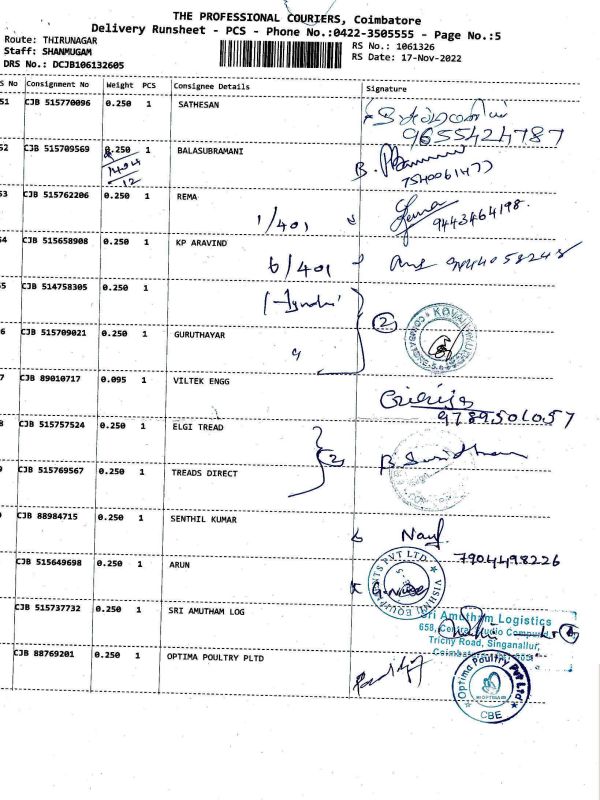 THE PROFESSIONAL COURIERS, Coimbatore
Delivery Runsheet - PCS - Phone No.:0422-3505555 - Page No.:5
Route: THIRUNAGAR
Staff: SHANMUGAM
DRS No.: DCJB106132605
RS No.: 1061326
RS Date: 17-Nov-2022
S No Consignment No Weight PCS Consignee Details Signature
51 CJB 515770096 0.250 1 SATHESAN
9655424787
52 CJB 515709569 0.250 1 BALASUBRAMANI
12
7540061477
53 CJB 515762206 0.250 1 REMA
1/401
9443464198
54 CJB 515658908 0.250 1 KP ARAVIND
6/401
55 CJB 514758305 0.250 1
2
6 CJB 515709021 0.250 1 GURUTHAYAR
7 CJB 89010717 0.095 1 VILTEK ENGG
9789501057
8 CJB 515757524 0.250 1 ELGI TREAD
2
9 CJB 515769567 0.250 1 TREADS DIRECT
CJB 88984715 0.250 1 SENTHIL KUMAR
7904498226
CJB 515649698 0.250 1 ARUN
CJB 515737732 0.250 1 SRI AMUTHAM LOG
Sri Amutham Logistics
Trichy Road, Singanallur,
CJB 88769201 0.250 1 OPTIMA POULTRY PLTD
Optima Poultry Pvt Ltd
CBE